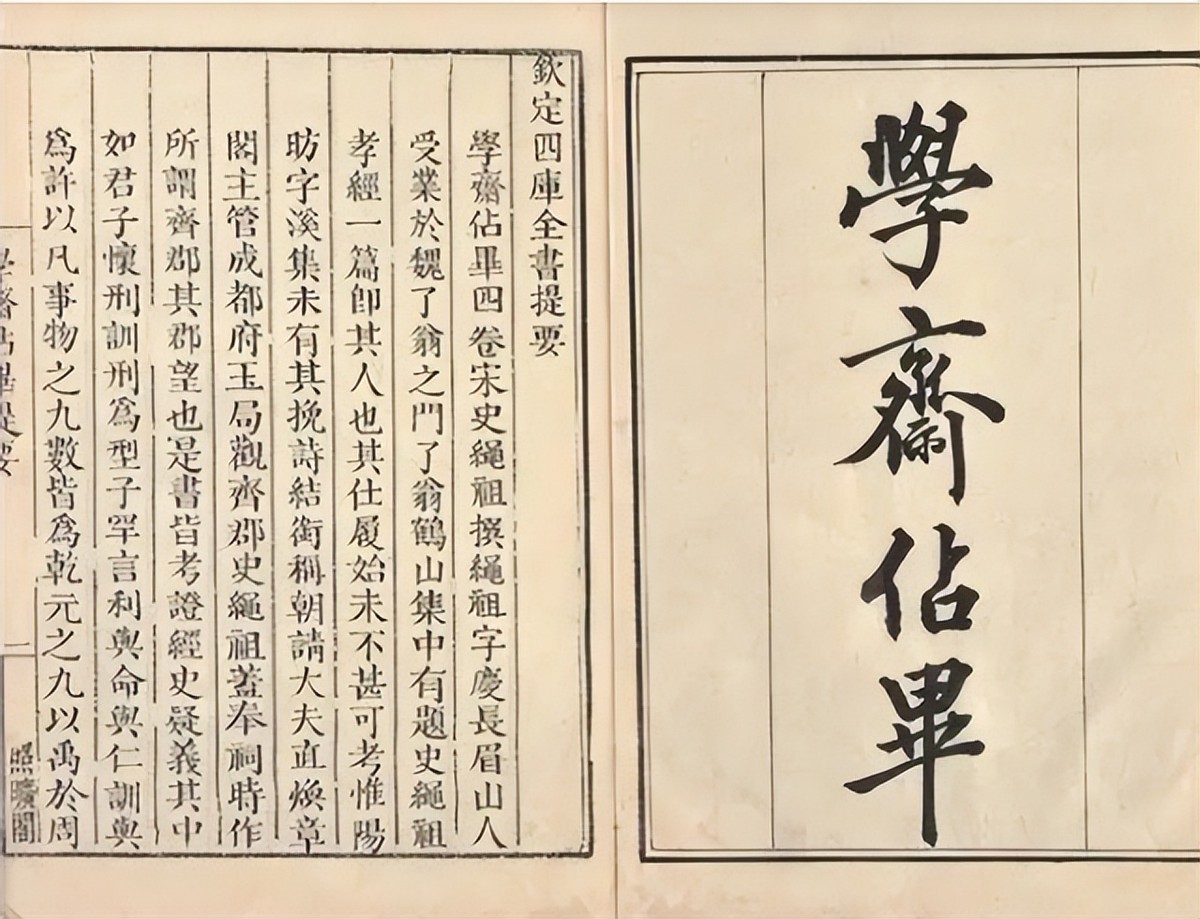 學齋佔畢
欽定四庫全書提要
學齋佔畢四卷宋史繩祖撰繩祖字慶長眉山人
受業於魏了翁之門了翁鶴山集中有題史繩祖
孝經一篇卽其人也其仕履始末不甚可考惟陽
昉字溪集末有其挽詩結銜稱朝請大夫直煥章
閣主管成都府玉局觀齊郡史繩祖蓋奉祠時作
所謂齊郡其郡望也是書皆考證經史疑義其中
如君子懷刑訓刑爲型子罕言利與命與仁訓與
爲許以凡事物之九數皆爲乾元之九以禹於周
學齋佔畢提要
一
照曠閣